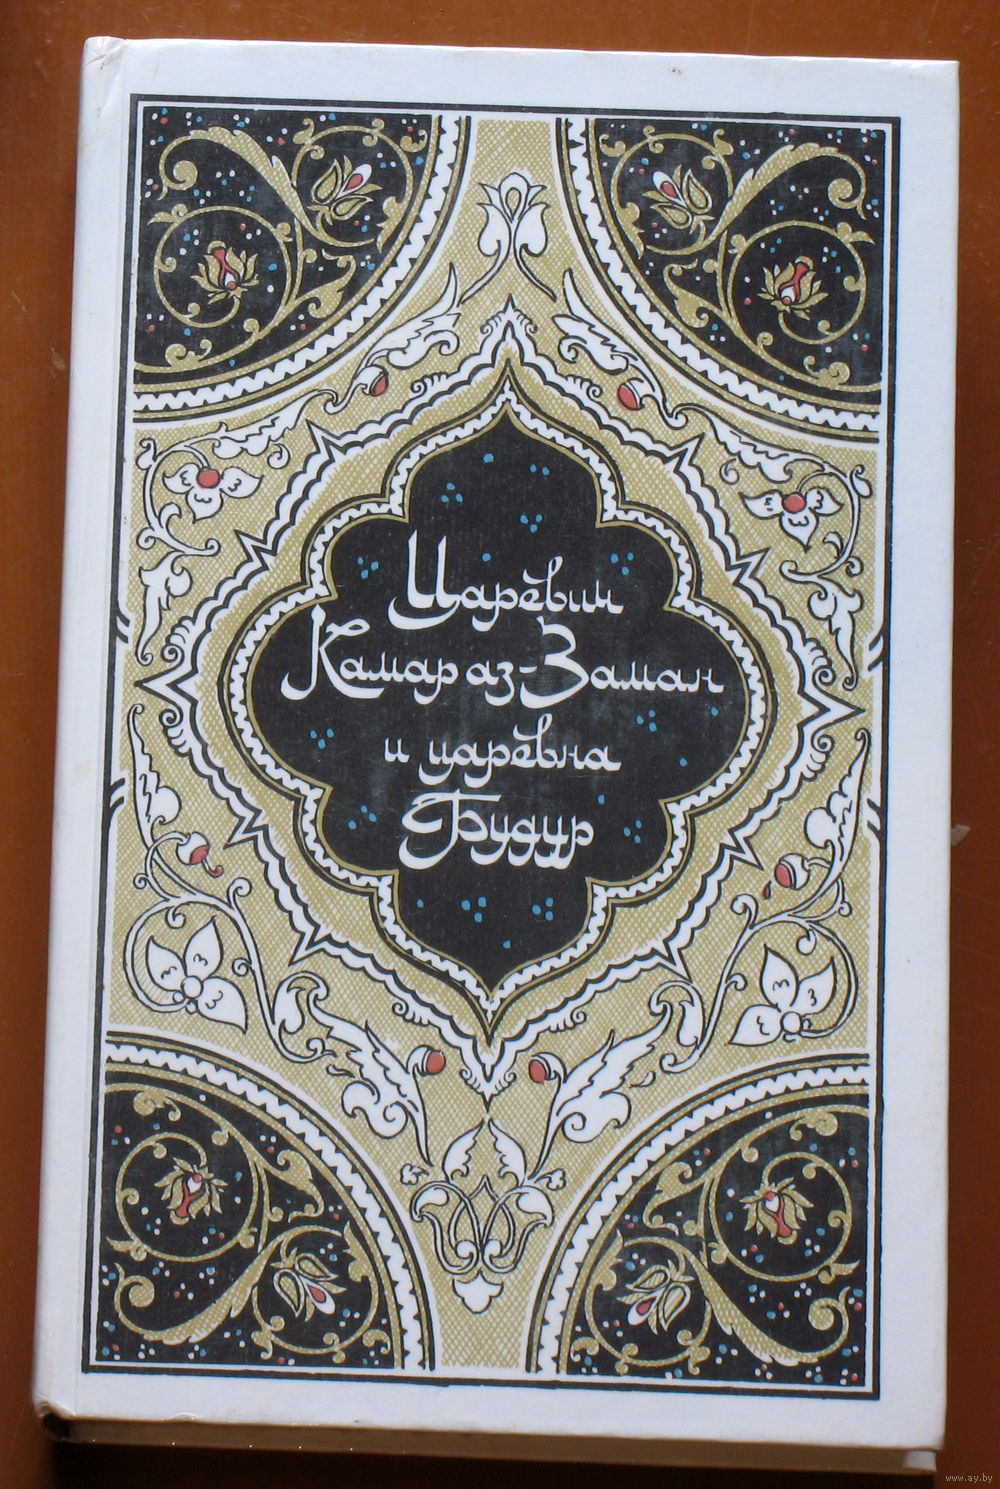 Царевич
Камар аз-Заман
и царевна
Будур
www.ay.by